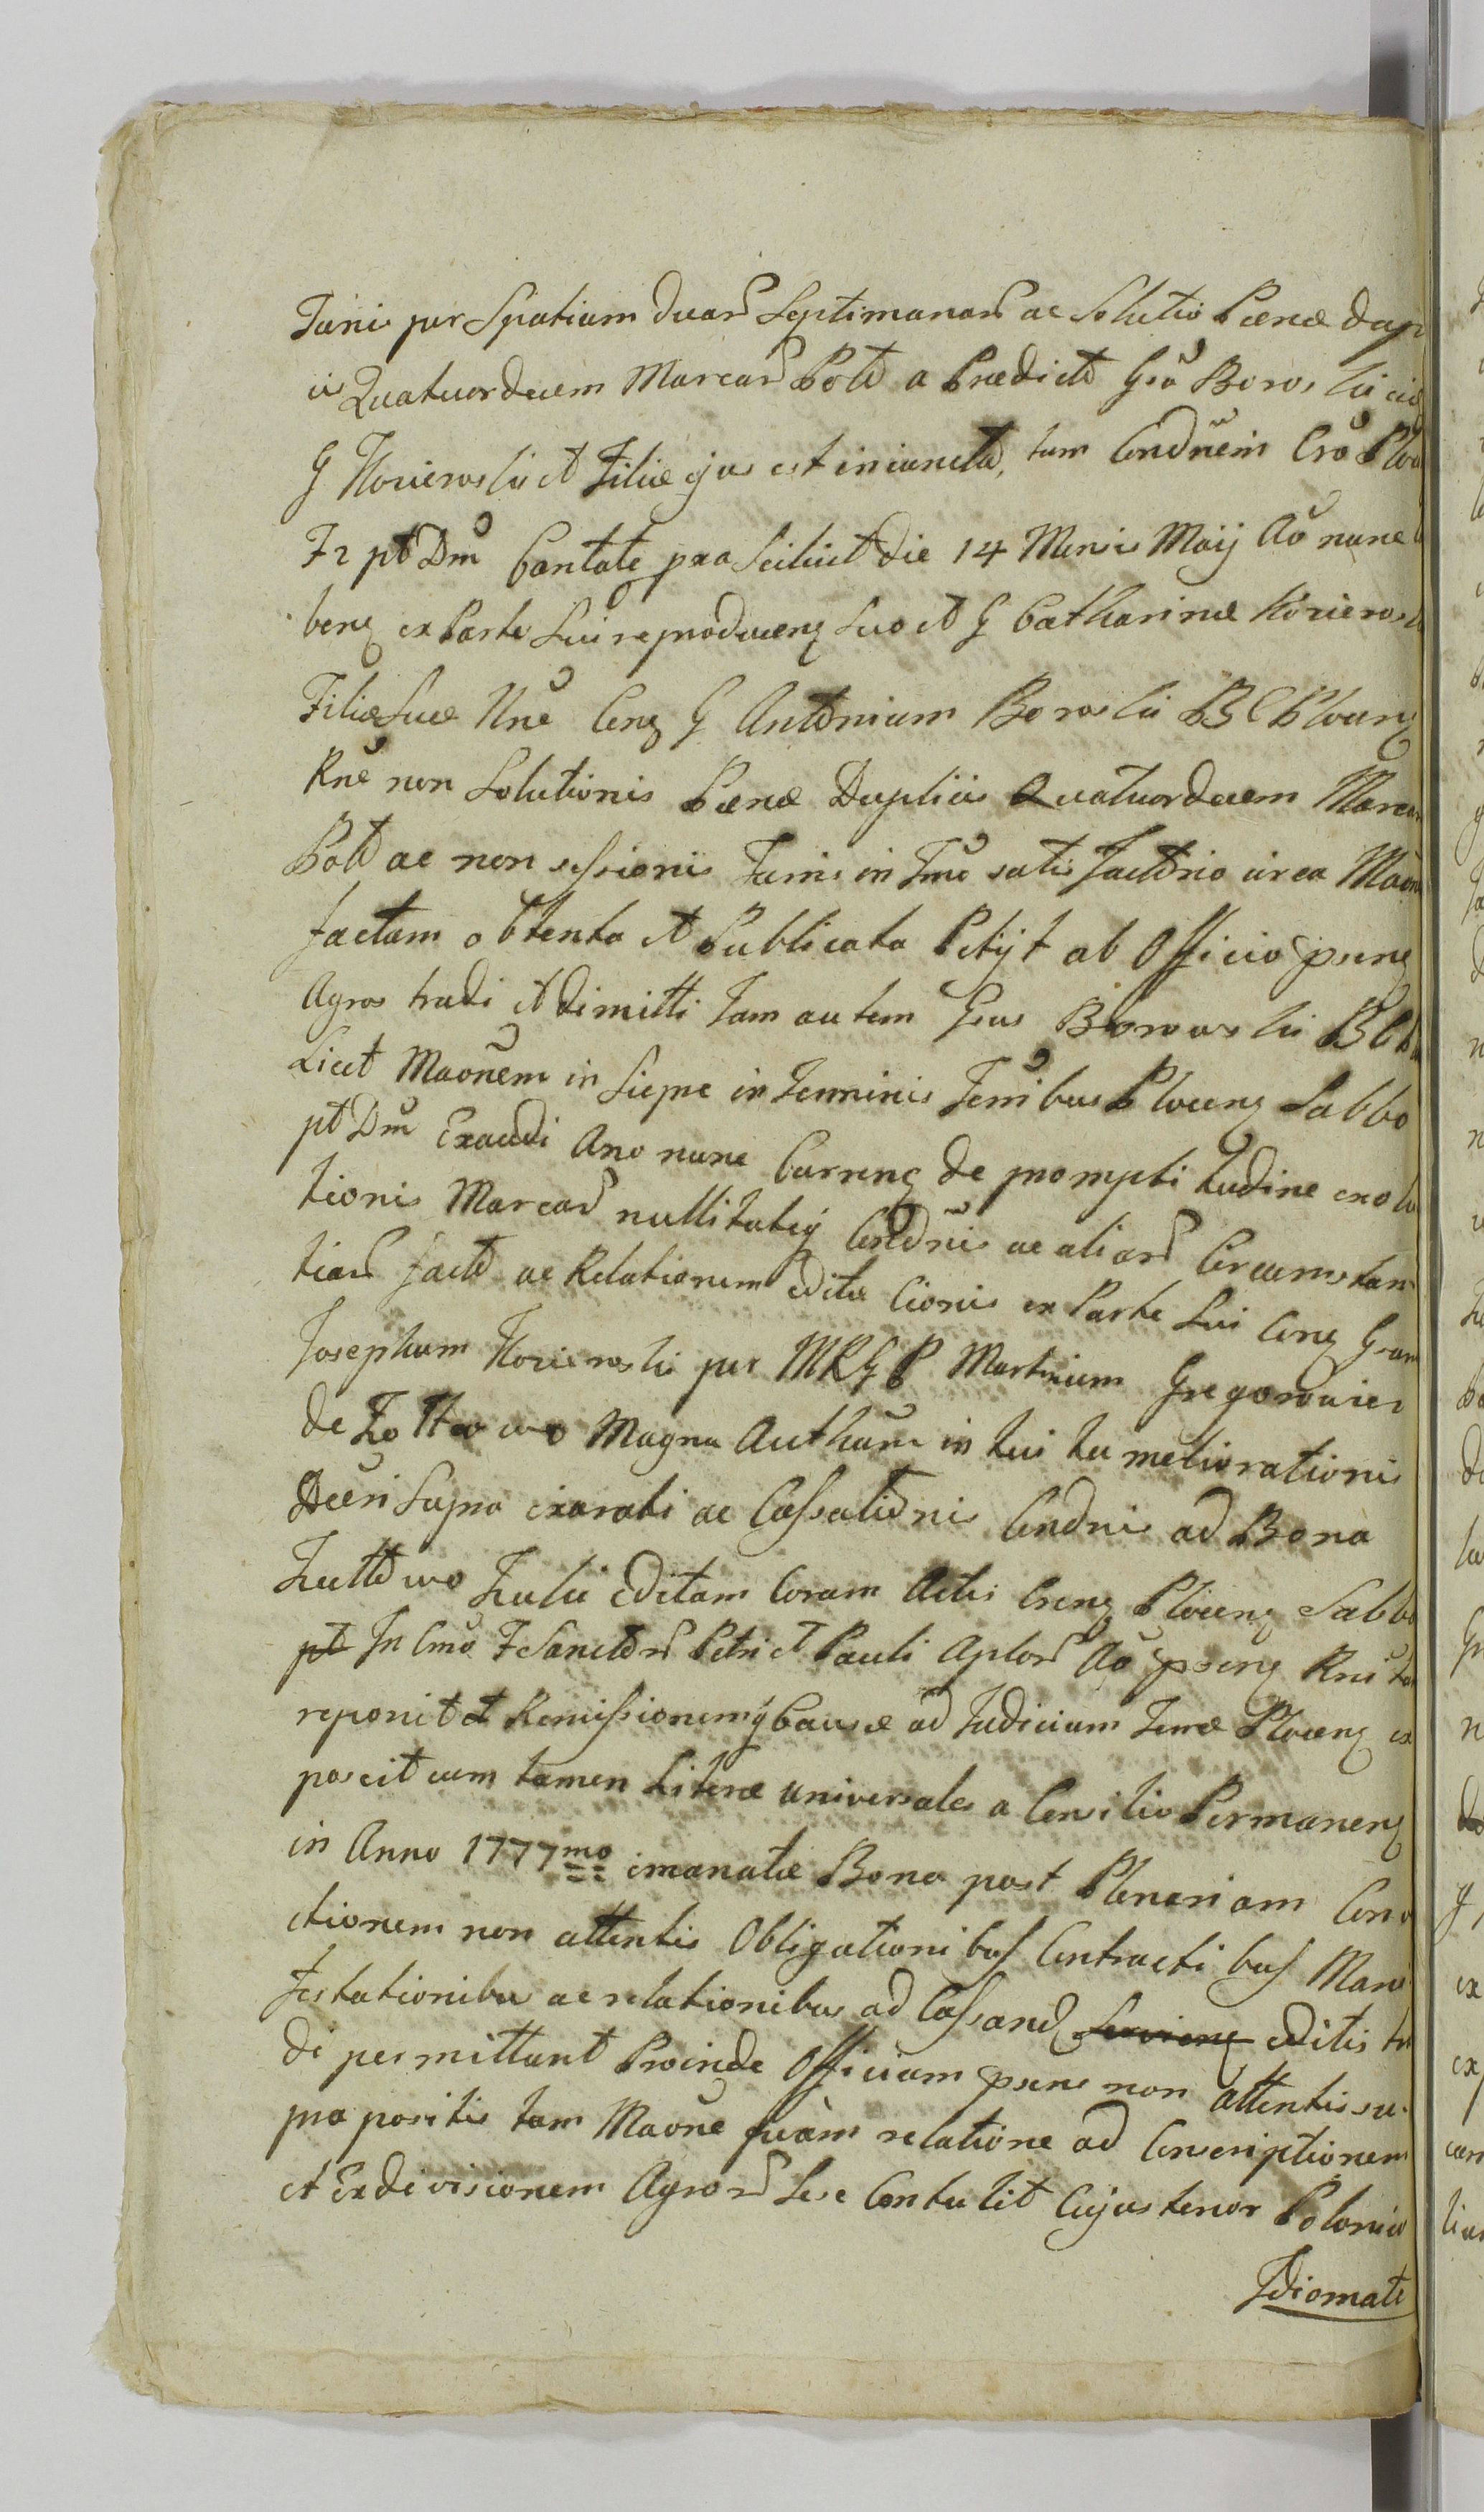 Turis per Spatium duar Septimanar ac Solutio Pœnæ dup
is Quatuordecem Marcar Pold a Prædicto Gso Borowski
G Koziewski et Filiæ ejus est iniuncta, tum Condnem Cro Ploc
Fr pt Dm Cantate pxa Scilicet die 14 Mensis Maij Ao nunc
ex Parte Sui reproducens Suo et G Catharinæ
Filiæ Suæ Nne Cens G Antonium Borowski Plocens
Rne non Solutionis Pœnæ Duplicis Quatuordecem Marcar
Pold ac non sessionis Turris in Tmo satis factorio circa Maonem
factam obtenta et Publicata Petijt ab Officio psens
Agros tradi et dimitti Iam autem Gsus Borowski
Licet Maonem in Siepre in Terminis Terribus Plocens Sabbo
pt Dm Exaudi Ano nunc Currens de promptitudine exolu
tionis Marcar nullitatisq Condnis ac aliar Circumstan
tiar facto ac Relationem editæ Cionis ex Parte Sui Cens Gsum
Josephum per MRGP Martinum Gregorowicz
de Magna Authum in tuitu meliorationis
Decri Supra exarati ac Cassationis Condnis ad Bona
editam Coram Actis Crens Plocens Sabbo
pt In Cmo F Sanctor Petri et Pauli Aplor Ao psens Rni
reponit et Remissionemq Causæ ad Iudicium Terræ Plocens ex
poscit cum tamen Literæ universales a Consilio Permanens
in Anno 1777mo emanatæ Bona post Plenariam Conv
ctionem non attentis Obligationibus Contractibus Mani
festationibus ac relationibus ad Cassand Serviens editis tra
di permittant Proinde Officium psens non attentis su
pra positis tam Maone quàm relatione ad Conscriptionem
et Exdivisionem Agror Sese Contulit Cujus tenor Polonico
Idiomate